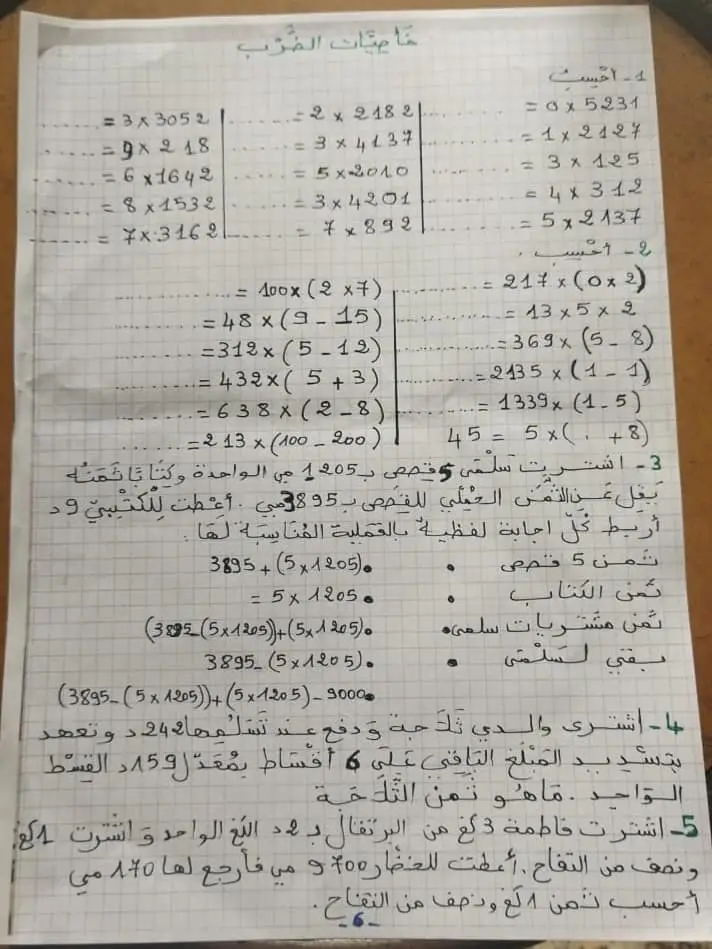 خاصيّات الضّرب
1- أحسب
5231 × 0 = ............
2127 × 1 = ............
125 × 3 = ............
312 × 4 = ............
2137 × 5 = ............
2182 × 2 = ............
4137 × 3 = ............
2010 × 5 = ............
4201 × 3 = ............
892 × 7 = ............
3052 × 3 = ............
218 × 9 = ............
1642 × 6 = ............
1532 × 8 = ............
3162 × 7 = ............
2- أحسب .
217 × (0 × 2) = ............
13 × 5 × 2 = ............
369 × (5 - 8) = ............
2135 × (1 - 1) = ............
1339 × (1 - 5) = ............
45 = 5 × ( . + 8)
100 × (2 × 7) = ............
48 × (9 - 15) = ............
312 × (5 - 12) = ............
432 × (5 + 3) = ............
638 × (2 - 8) = ............
213 × (100 - 200) = ............
3- اشترت سلمى 5 قصص ب 1205 مي الواحدة وكتابا ثمنه
يقل عن الثمن الجملي للقصص ب 3895 مي . أعطت للكتبيّ 9 د
أربط كلّ اجابة لفظية بالعملية المناسبة لها :
ثمن 5 قصص • • 3895 + (5 × 1205)
ثمن الكتاب • • 5 × 1205 =
ثمن مشتريات سلمى • • (3895 - (5 × 1205)) + (5 × 1205)
بقي لسلمى • • 3895 - (5 × 1205)
• (3895 - (5 × 1205)) + (5 × 1205) - 9000
4- اشترى والدي ثلاجة ودفع عند تسلمها 242 د وتعهد
بتسديد المبلغ الباقي على 6 أقساط بمعدّل 159 د القسط
الواحد . ماهو ثمن الثلاجة
5- اشترت فاطمة 3 كغ من البرتقال ب 2 د الكغ الواحد واشترت 1 كغ
ونصف من التفاح . أعطت للخضار 9700 مي فأرجع لها 170 مي
أحسب ثمن 1 كغ ونصف من التفاح .
- 6 -